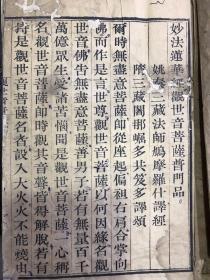 妙法蓮華經觀世音菩薩普門品
姚秦三藏法師鳩摩羅什譯經
隋三藏闍那崛多共笈多譯頌
爾時無盡意菩薩即從座起偏袒右肩合掌向
佛而作是言世尊觀世音菩薩以何因緣名觀
世音佛告無盡意菩薩善男子若有無量百千
萬億眾生受諸苦惱聞是觀世音菩薩一心稱
名觀世音菩薩即時觀其音聲皆得解脫若有
持是觀世音菩薩名者設入大火火不能燒由